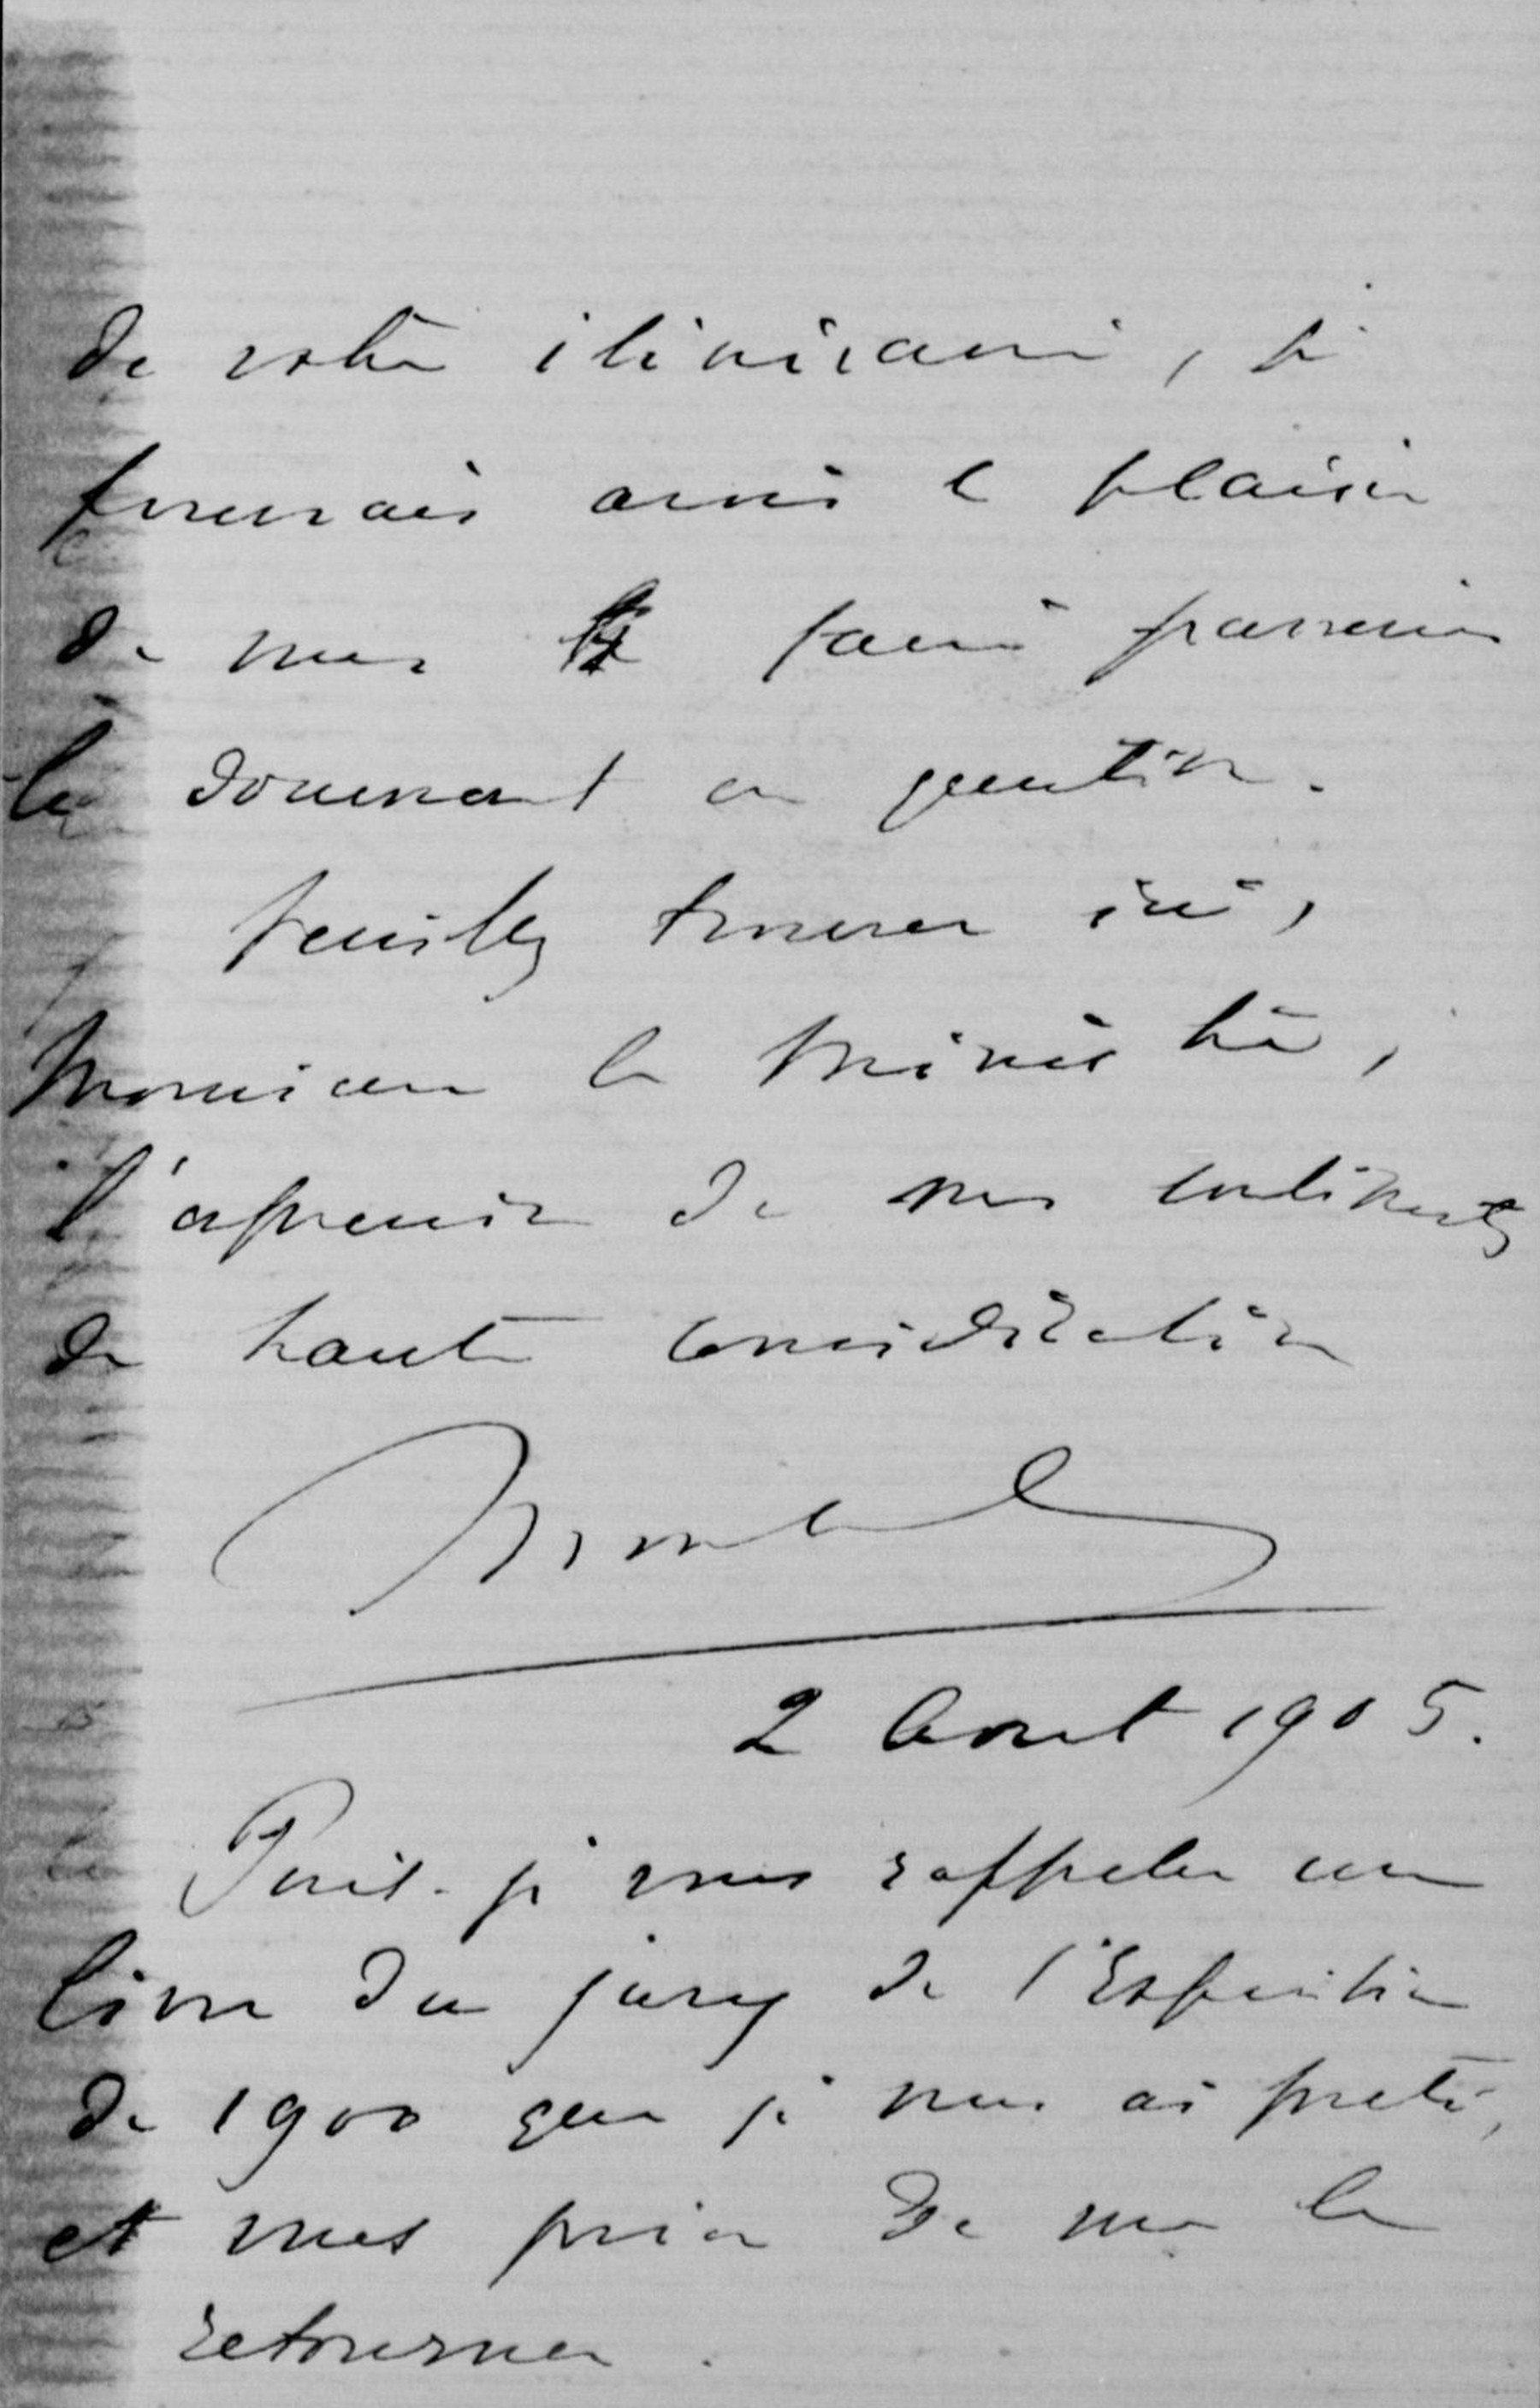 de votre itinéraire, je
pourrais ainsi le plaisir
de vous faire parvenir
le document en question.
Veuillez trouver ici,
Monsieur le Ministre,
l'expression de mes sentiments
de haute considération
2 Aout 1905.
Puis-je vous rappeler un
livre du jury de l'Exposition
de 1900 que je vous ai preté,
et vous prier de me le
retourner.